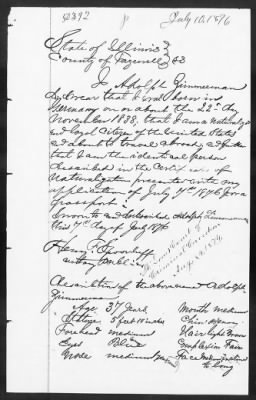 July 10, 1876
State of Illinois }
County of Tazewell } SS
I Adolph Zimmerman
do swear that I was born in
Germany on or about the 22nd day
November 1838, that I am a naturalized
and loyal Citizen of the United States
and about to travel abroad, and further
that I am the identical person
described in the Certificate of
Naturalization presented with my
application of July 7th 1876 for a
passport
Sworn to and subscribed Adolph Zimmerman
this 7th day of July 1876
Henry
Notary Public
Description of the above named Adolph
Zimmerman
Age 37 years Mouth medium
Stature 5 feet 10 inches Chin
Forehead medium Hair light brown
Eyes Blue Complexion Fair
Nose medium Face
to long